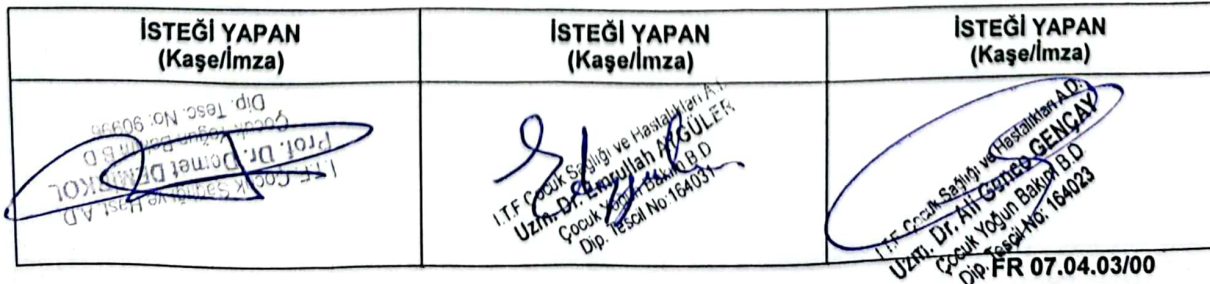 İSTEĞİ YAPAN
(Kaşe/İmza)
İSTEĞİ YAPAN
(Kaşe/İmza)
İSTEĞİ YAPAN
(Kaşe/İmza)
I.T.F. Çocuk Sağlığı ve Hast. A.D
Prof. Dr. Demet DEMİRKOL
Çocuk Yoğun Bakım B.D
Dip. Tesc. No:
I.T.F Çocuk Sağlığı ve Hastalıkları A.D
Uzm. Dr. Emrullah AYGÜLER
Çocuk Yoğun Bakım B.D
Dip. Tescil No: 164031
I.T.F. Çocuk Sağlığı ve Hastalıkları A.D.
Uzm. Dr. Ali Genco GENÇAY
Çocuk Yoğun Bakım B.D
Dip. Tescil No: 164023
FR 07.04.03/00